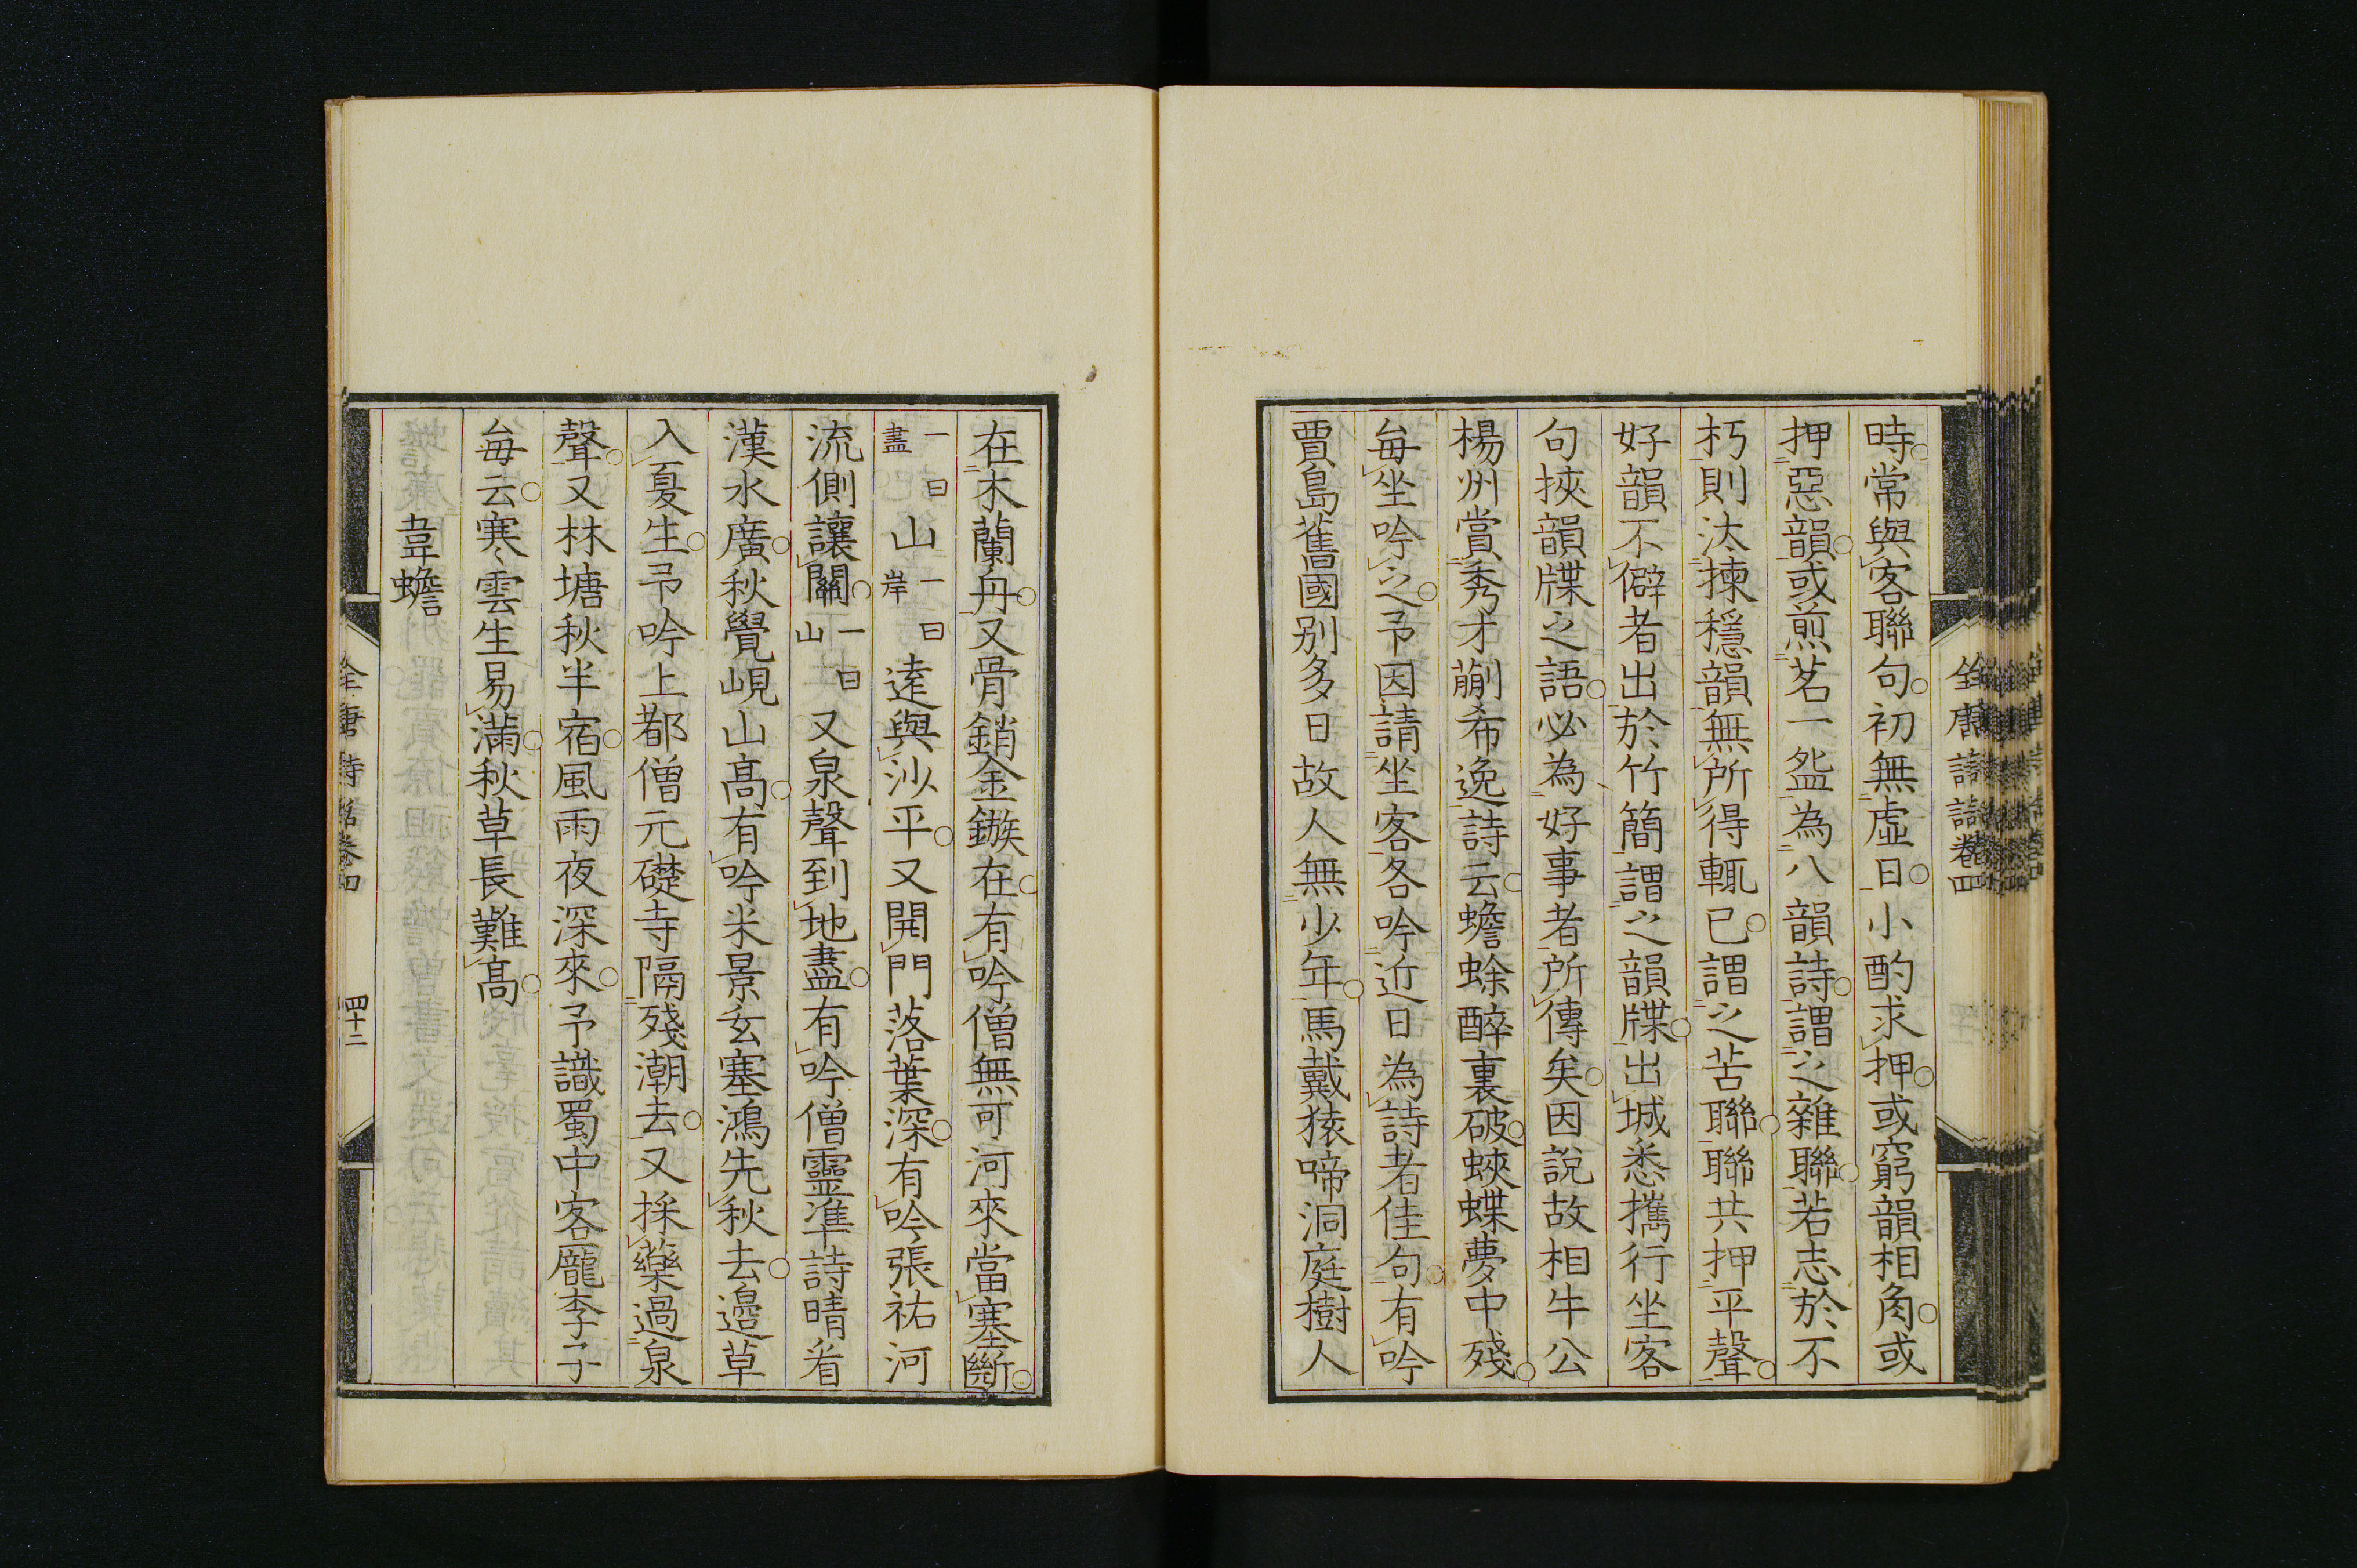 時常與客聯句初無虛日小酌求押或窮韻相角或
押惡韻或煎茗一盌為八韻詩謂之雜聯若志於不
朽則汰揀穩韻無所得輒已謂之苦聯聯共押平聲
好韻不僻者出於竹簡謂之韻牒出城悉攜行坐客
句挾韻牒之語必為好事者所傳矣因說故相牛公
楊州賞秀才蒯希逸詩云蟾蜍醉裏破蛺蝶夢中殘
每坐吟之予因請坐客各吟近日為詩者佳句有吟
賈島舊國別多日故人無少年馬戴猿啼洞庭樹人
在木蘭舟又骨銷金鏃在有吟僧無可河來當塞斷
一曰盡山一曰岸遠與沙平又開門落葉深有吟張祐河
流側讓關一曰山又泉聲到地盡有吟僧靈準詩晴看
漢水廣秋覺峴山高有吟米景玄塞鴻先秋去邊草
入夏生予吟上都僧元礎寺隔殘潮去又採藥過泉
聲又林塘秋半宿風雨夜深來予識蜀中客龐季子
每云寒雲生易滿秋草長難高
韋蟾
全唐詩話卷四
四十二